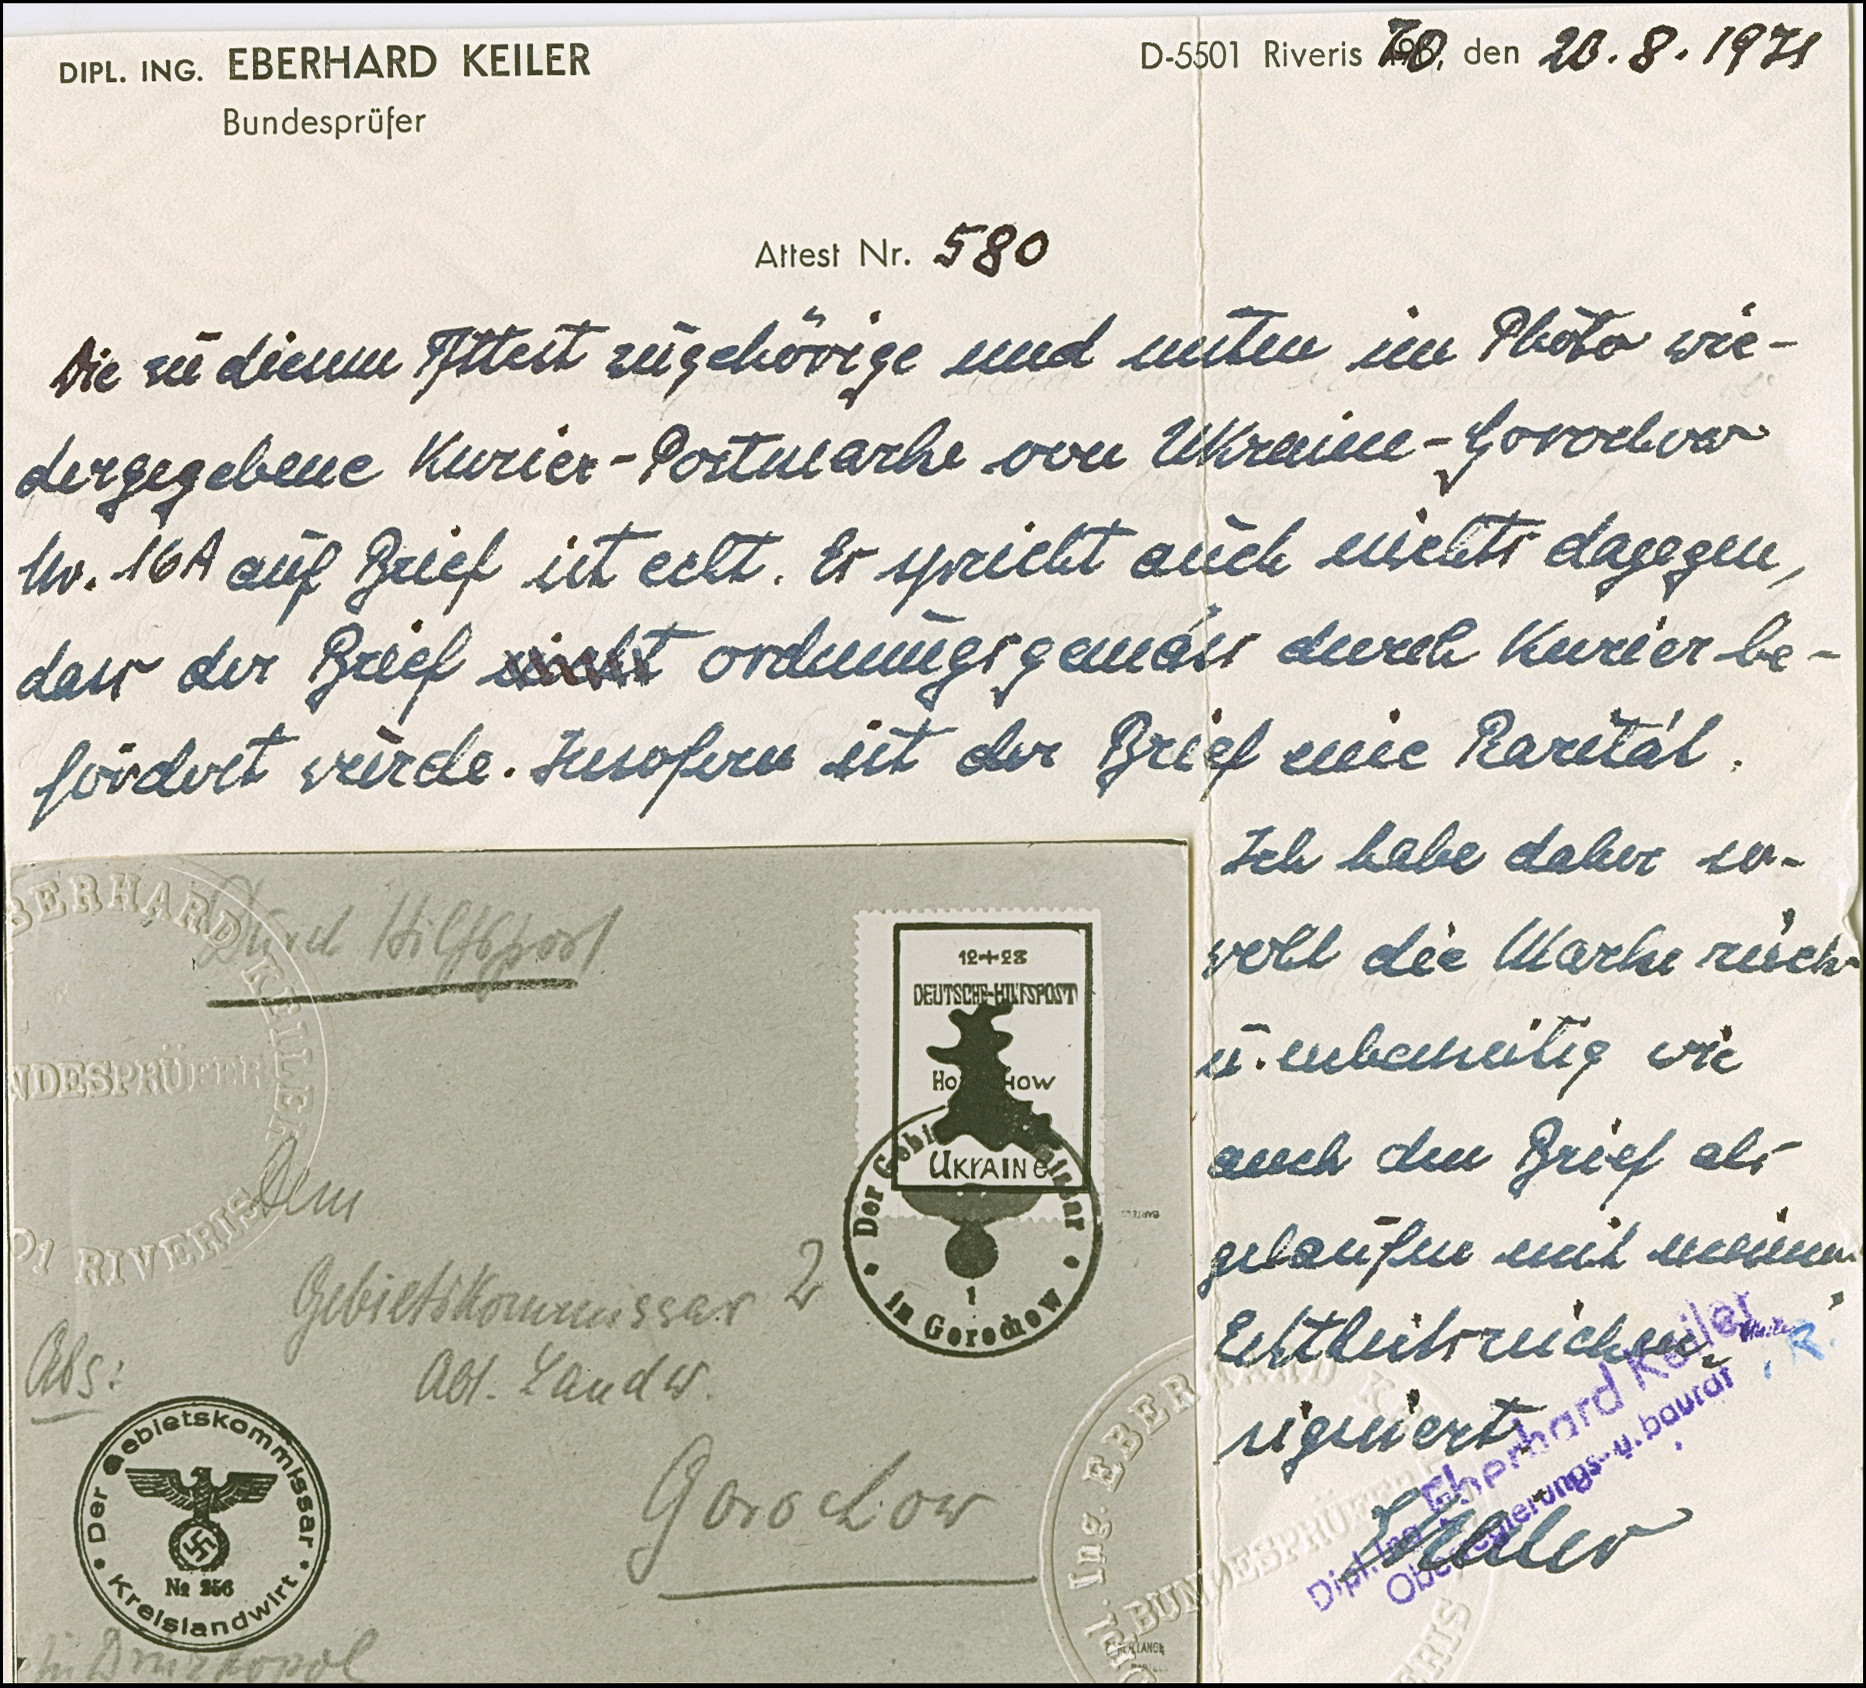 DIPL. ING. EBERHARD KEILER
Bundesprüfer
D-5501 Riveris, den 20.8.1971
Attest Nr. 580
Die zu diesem Attest zugehörige und unten im Photo wie-
dergegebene Kurier-Postmarke von Ukraine-Gorochow
Nr. 16A auf Brief ist echt. Es spricht auch nichts dagegen,
dass der Brief nicht ordnungsgemäss durch Kurier be-
fördert wurde. Insofern ist der Brief eine Rarität.
Ich habe daher so-
wohl die Marke rück-
u. unbenseitig wie
auch den Brief als
gelaufen mit meinem
Echtheitszeichen
signiert.
Keiler
Dipl. Ing. Eberhard Keiler
Oberregierungs- u. baurat
Durch Hilfspost
12+28
DEUTSCHE-HILFSPOST
UKRAINE
Der Gebi issar
in Gorochow
1
Dem
Gebietskommissar 2
Abt. Landw.
Gorochow
Abs:
Der Gebietskommissar
Nº 256
Kreislandwirt
EBERHARD KEILER
BUNDESPRÜFER
RIVERIS
Ing. EBERHARD K
BUNDESPRÜFER